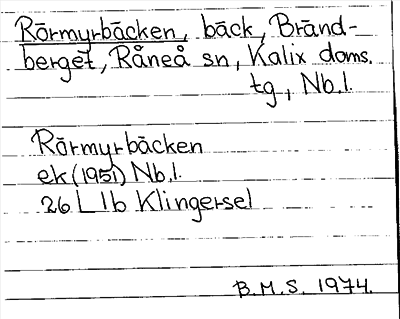 Rörmyrbäcken, bäck, Bränd-
berget, Råneå sn, Kalix doms.
tg, Nb.l.
Rörmyrbäcken
ek (1951) Nb.l.
26 L 1b Klingersel
B.M.S. 1974.